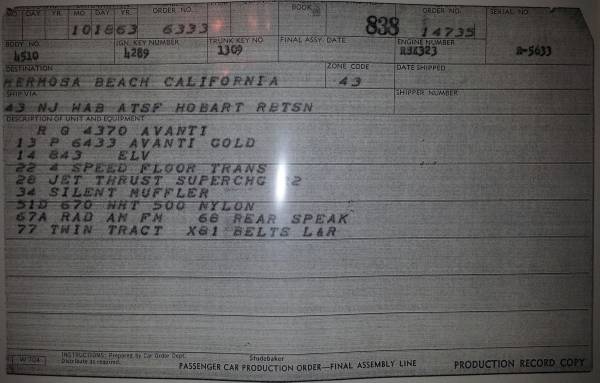 MO DAY YR. MO DAY YR. ORDER NO. BOOK ORDER NO. SERIAL NO.
101863 6333 838 14735
BODY NO. IGN. KEY NUMBER TRUNK KEY NO. FINAL ASSY. DATE ENGINE NUMBER
4510 4289 1309 R-5633
DESTINATION ZONE CODE DATE SHIPPED
HERMOSA BEACH CALIFORNIA 43
SHIP VIA SHIPPER NUMBER
43 NJ WAB ATSF HOBART RBTSN
DESCRIPTION OF UNIT AND EQUIPMENT
R Q 4370 AVANTI
13 P 6433 AVANTI GOLD
14 843 ELV
22 4 SPEED FLOOR TRANS
28 JET THRUST SUPERCHG R2
34 SILENT MUFFLER
51D 670 WHT 500 NYLON
67A RAD AM FM 68 REAR SPEAK
77 TWIN TRACT X81 BELTS L&R
W 704 INSTRUCTIONS: Prepared by Car Order Dept. Studebaker
Distribute as required. PASSENGER CAR PRODUCTION ORDER—FINAL ASSEMBLY LINE PRODUCTION RECORD COPY